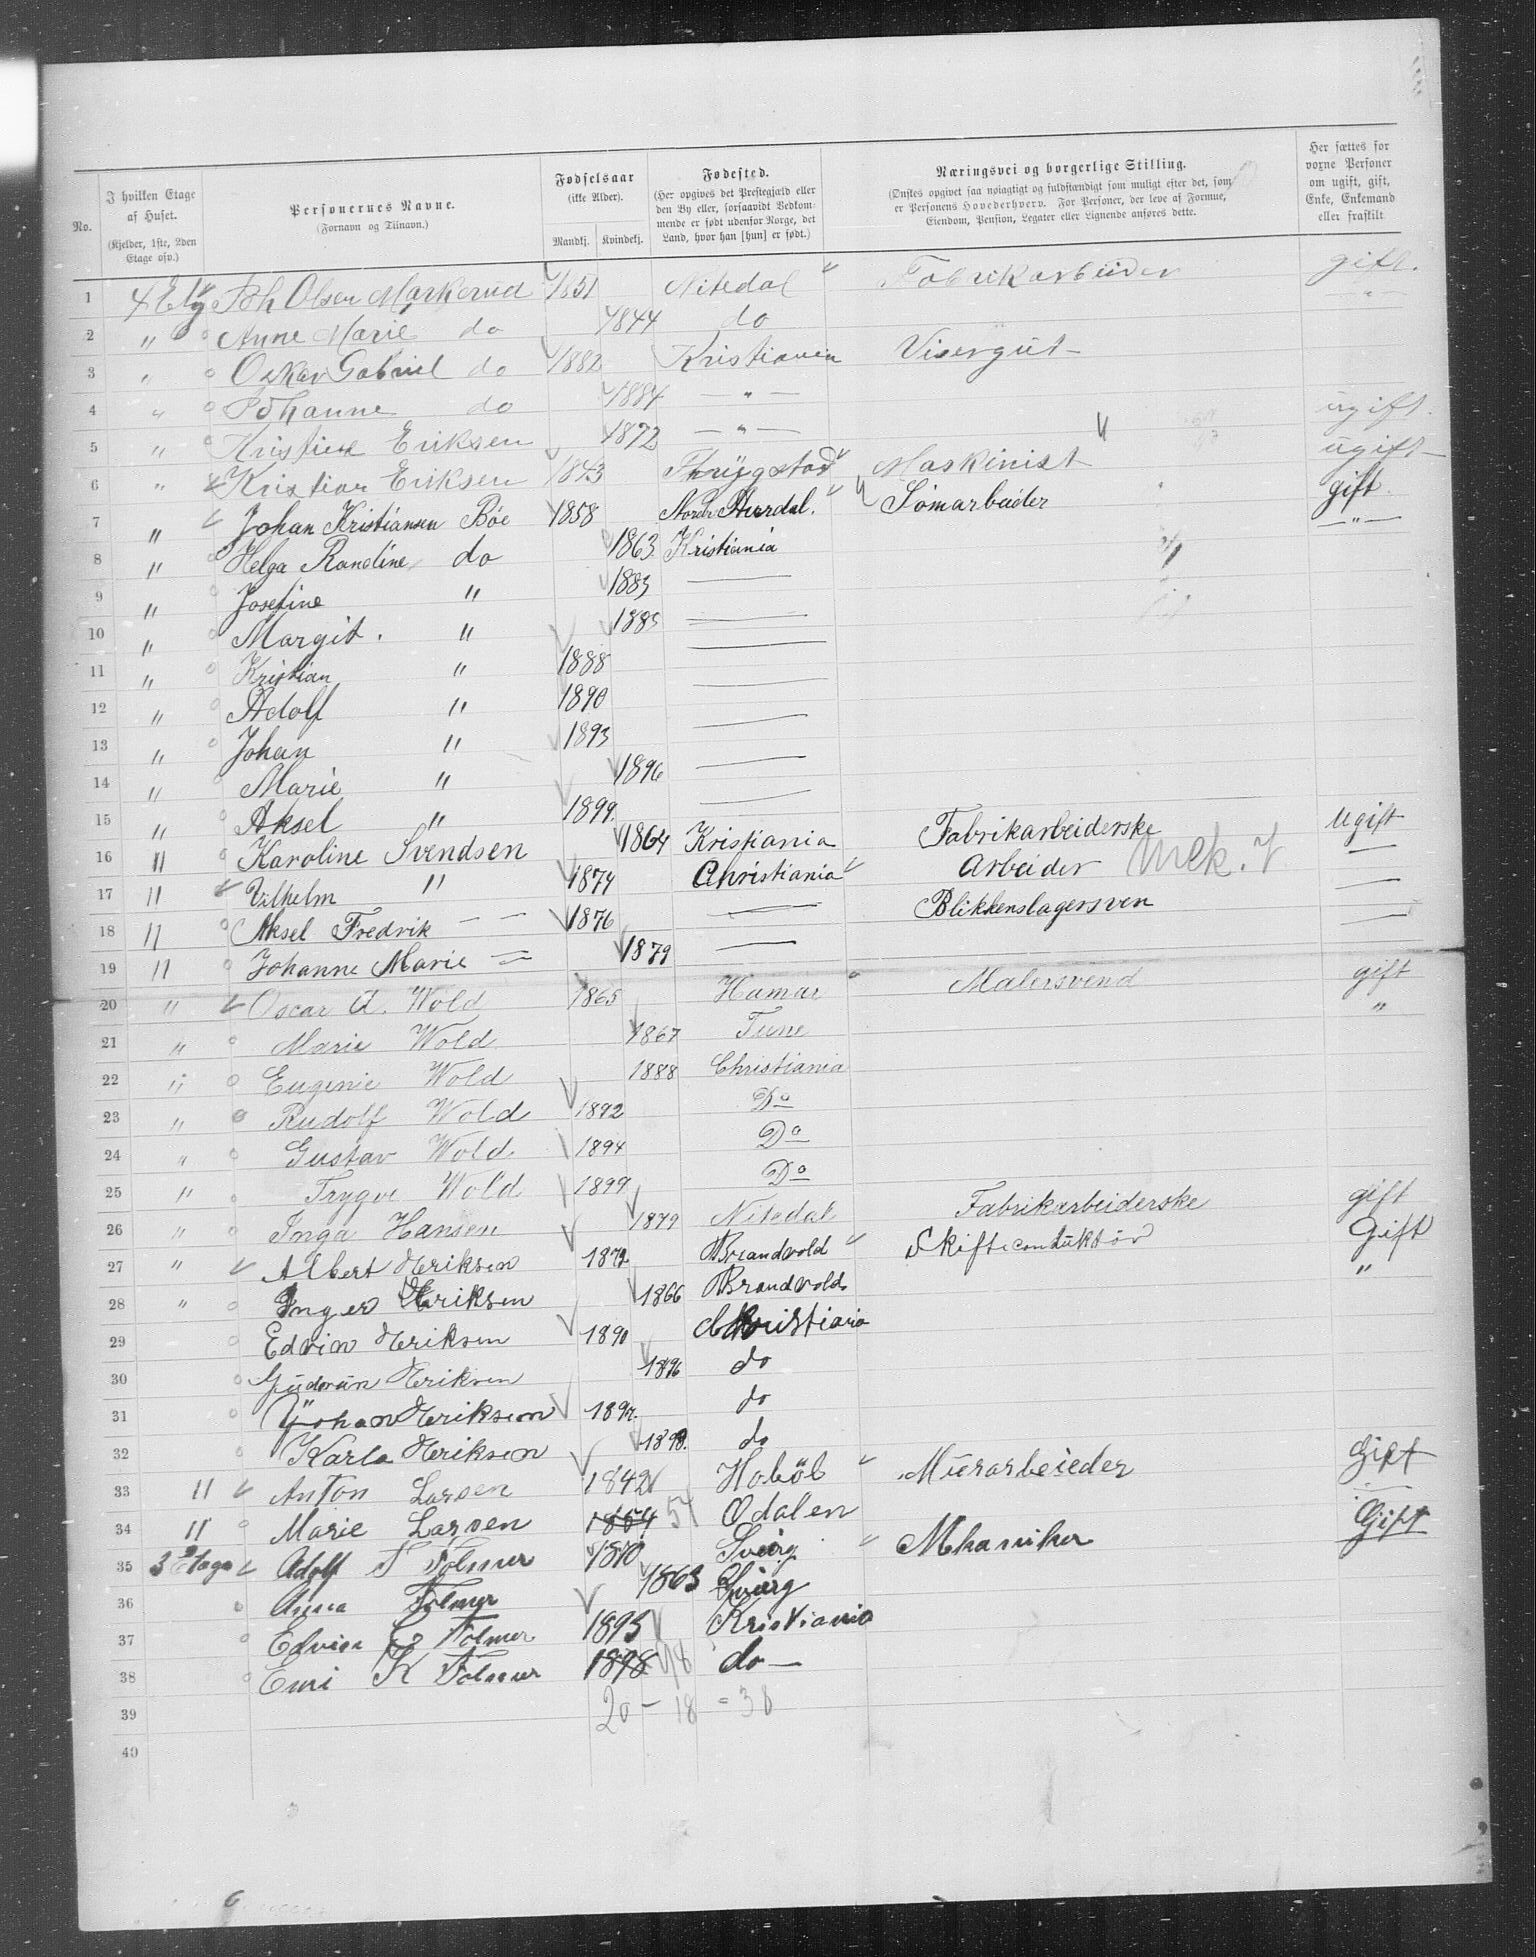 No. I hvilken Etage af Huset. (Kjelder, 1ste, 2den Etage osv.) Personernes Navne. (Fornavn og Tilnavn.) Fødselsaar (ikke Alder). Mandkj. Kvindekj. Fødested. (Her opgives det Prestegjæld eller den By eller, forsaavidt Vedkommende er født udenfor Norge, det Land, hvor han [hun] er født.) Næringsvei og borgerlige Stilling. (Ønskes opgivet saa nøiagtigt og fuldstændigt som muligt efter det, som er Personens Hovederhverv. For Personer, der leve af Formue, Eiendom, Pension, Legater eller Lignende anføres dette. Her sættes for voxne Personer om ugift, gift, Enke, Enkemand eller fraskilt
1 4 Etg Joh Olsen Markerud 1851 Nitedal Fabrikarbeider gift.
2 " Anne Marie do 1844 do "
3 " Oskar Gabriel do 1882 Kristiania Visergut
4 " Johanne do 1884 — " —
5 " Kristine Eriksen 1872 — " — ugift.
6 " Kristian Eriksen 1843 Thrygstad Maskinist ugift
7 " Johan Kristiansen Böe 1858 Nordre Hurdal. Tömarbeider gift.
8 " Helga Randine do 1863 Kristiania — " —
9 " Josefine " 1883 —
10 " Margit. " 1885 —
11 " Kristian " 1888 —
12 " Adolf " 1890 —
13 " Johan " 1893 —
14 " Marie " 1896 —
15 " Aksel " 1899. —
16 " Karoline Svendsen 1864 Kristiania Fabrikarbeiderske Ugift
17 " Vilhelm " 1874 Christiania Arbeider Mek. V —
18 " Aksel Fredrik — — 1876 — Blikkenslagersven —
19 " Johanne Marie — 1879 — —
20 " Oscar A. Wold 1865 Hamar Malersvend gift
21 " Marie Wold 1867 Tune "
22 " Eugenie Wold 1888 Christiania
23 " Rudolf Wold 1892 Do
24 " Gustav Wold 1894 Do
25 " Trygve Wold 1899 Do
26 " Inga Hansen 1879 Nitedal Fabrikarbeiderske gift
27 " Albert Heriksen 1872 Brandvold Skifteconduktör Gift
28 " Inger Heriksen 1866 Brandvold "
29 Edvin Heriksen 1890 Christiania
30 Gudrun Heriksen 1896 do
31 Johan Heriksen 1897. do
32 Karla Heriksen 1898. do
33 " Anton Larsen 1842 Haböl Murarbeieder Gift
34 " Marie Larsen 1854 54 Odalen
35 3 Etage Adolf S Folmer 1870 Sverig Mekaniker Gift
36 Anna Folmer 1863 Sverig
37 Edvin G Folmer 1895 Kristiania
38 Emi K Folmer 1898 98 do —
39 20 - 18 = 38
40